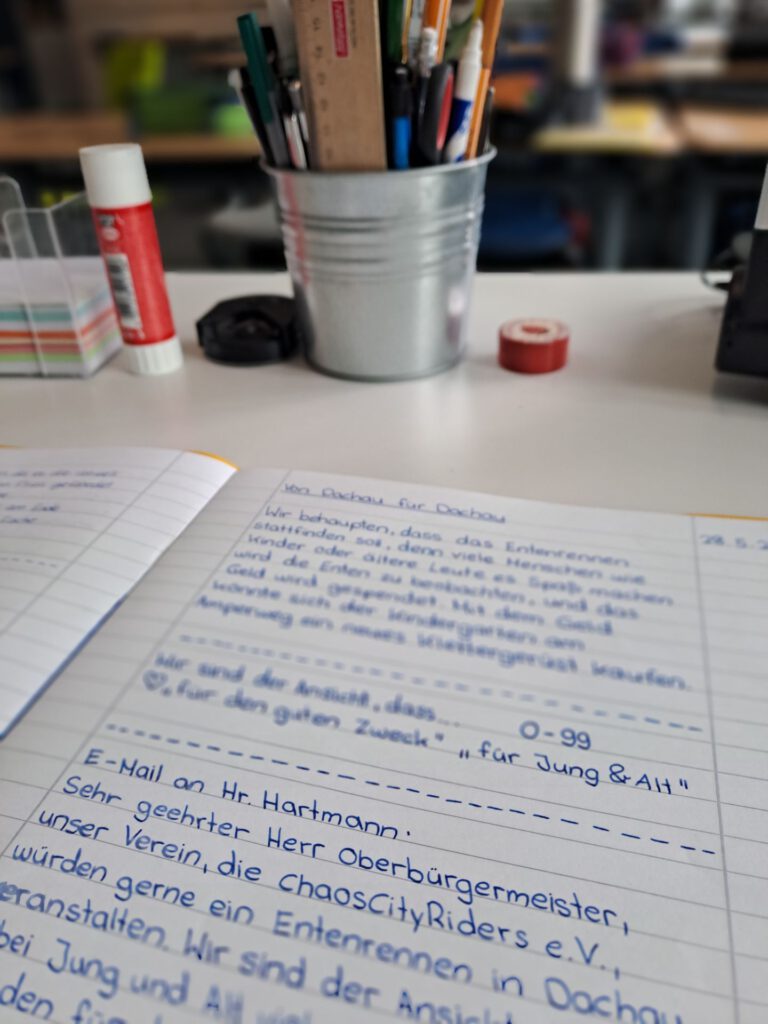 Von Dachau für Dachau
28.5.2
Wir behaupten, dass das Entenrennen
stattfinden soll, denn viele Menschen wie
Kinder oder ältere Leute es Spaß machen
wird die Enten zu beobachten, und das
Geld wird gespendet. Mit dem Geld
könnte sich der Kindergarten am
Amperweg ein neues Klettergerüst kaufen.
Wir sind der Ansicht, dass...
0-99
♡„für den guten Zweck" „für Jung & Alt"
E-Mail an Hr. Hartmann.
Sehr geehrter Herr Oberbürgermeister,
unser Verein, die ChaosCityRiders e.V.,
würden gerne ein Entenrennen in Dachau
eranstalten. Wir sind der Ansicht
bei Jung und Alt viel
den für